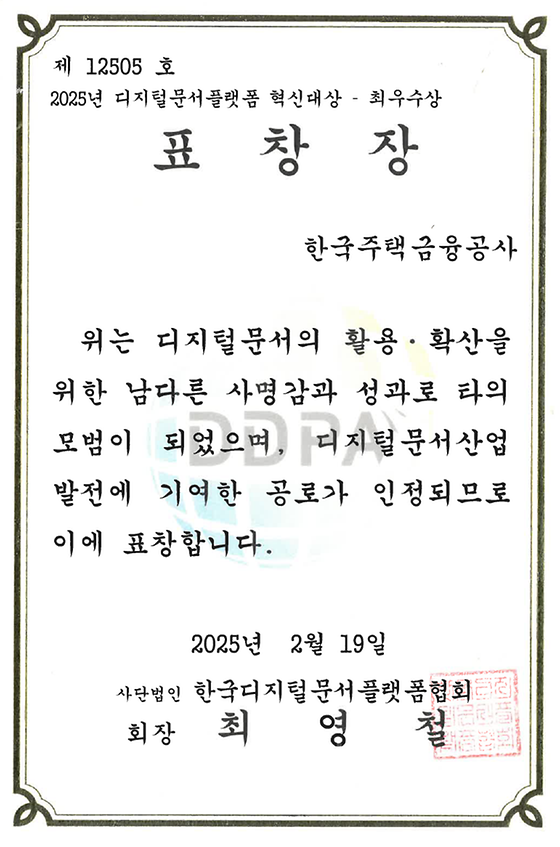 제 12505 호
2025년 디지털문서플랫폼 혁신대상 - 최우수상
표 창 장
한국주택금융공사
위는 디지털문서의 활용·확산을
위한 남다른 사명감과 성과로 타의
모범이 되었으며, 디지털문서산업
발전에 기여한 공로가 인정되므로
이에 표창합니다.
DDPA
2025년 2월 19일
사단법인 한국디지털문서플랫폼협회
회장 최 영 철